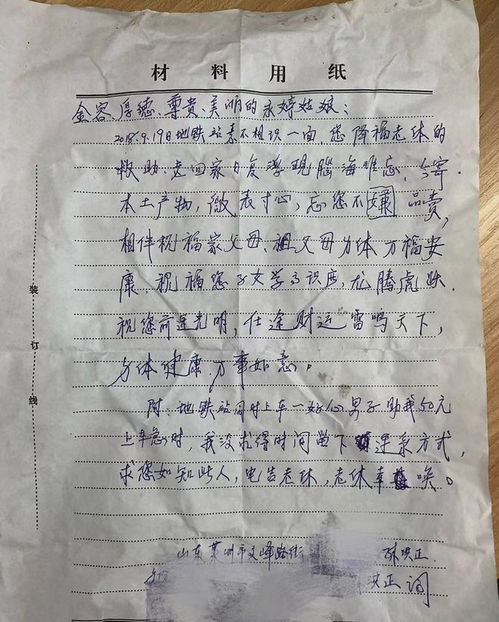 材料用纸
金容、厚德、尊貴、美明的永婷姑娘:
2018.9.19日地铁站素不相识一面 您降福老休的
救助 走回家日夜浮现腦海难忘,今寄
本土产物,敬表寸心,忘您不嫌 品贵,
相伴祝福家父母、祖父母身体万福安
康 祝福您子女学高识广,龙腾虎跃.
祝您前途光明,仕途财运雷鸣天下,
身体健康 万事如意。
附:地铁站同时上车一好心男子 助我50元
上车急时,我没求得时间留下 联系方式,
求您如知此人,电告老休,老休幸 唉。
山东莱州市文峰路街
洪正
洪正
装订线